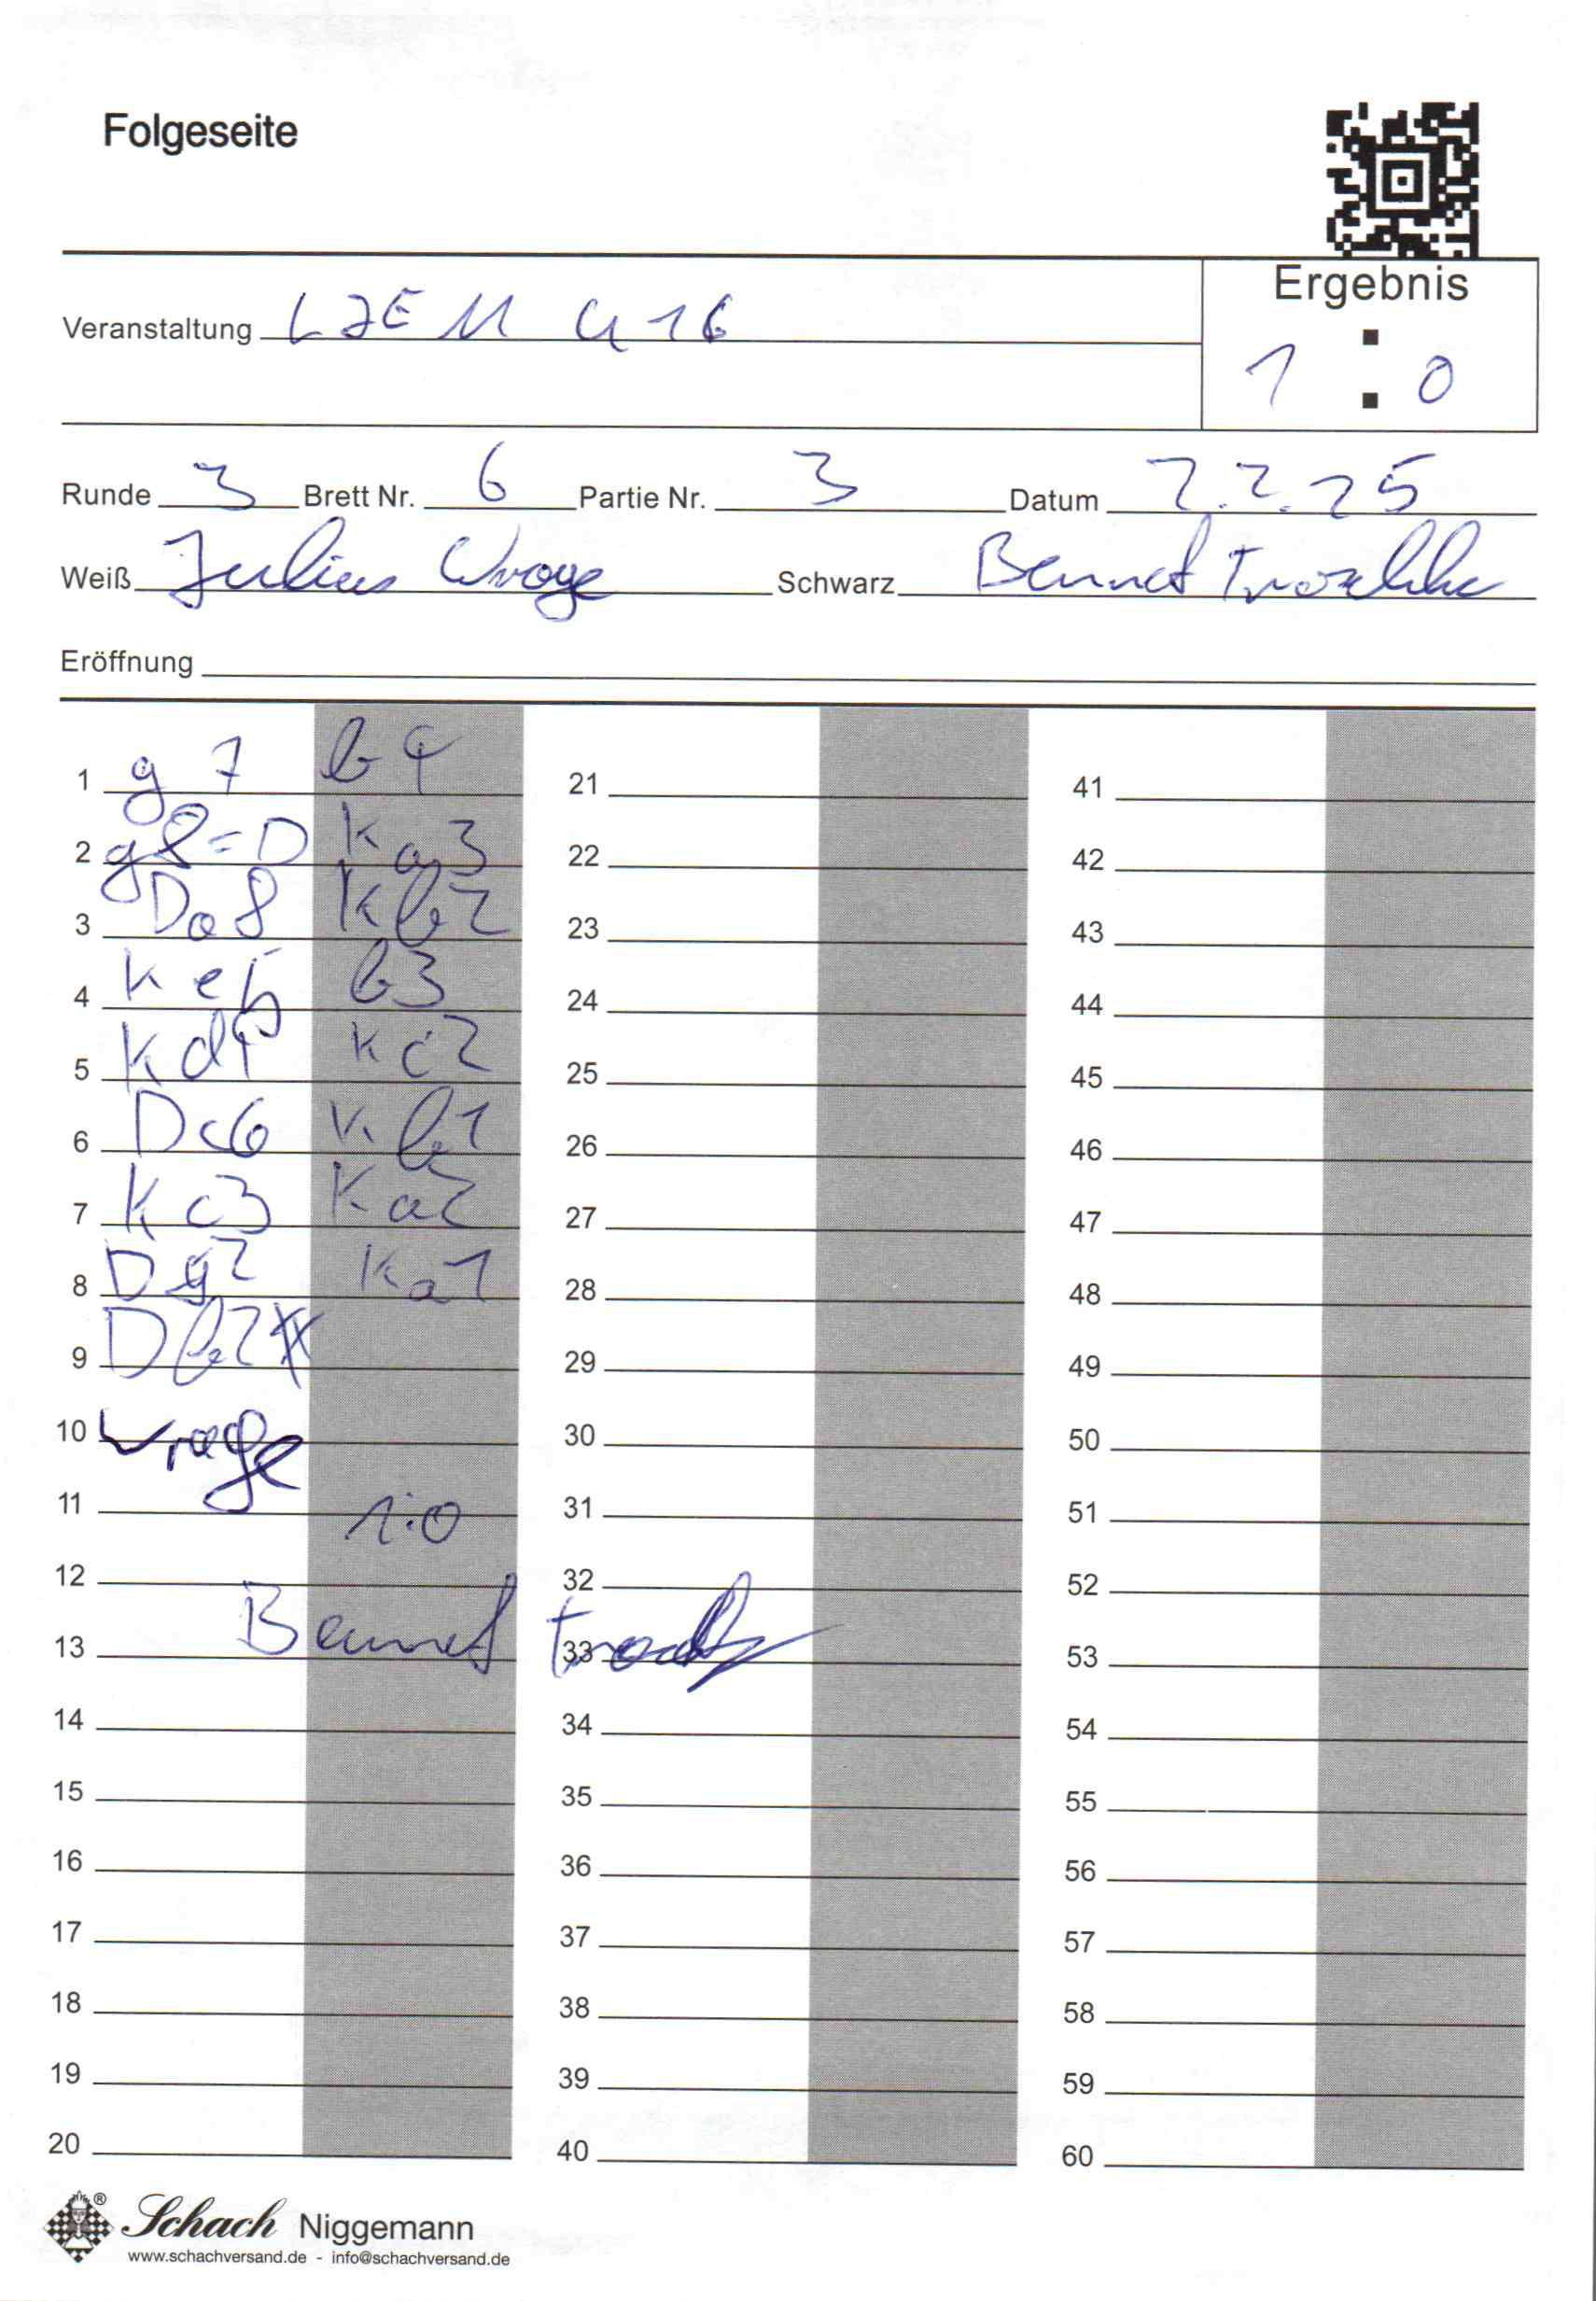 Folgeseite
Ergebnis
Veranstaltung LJEM U16
1 : 0
Runde 3 Brett Nr. 6 Partie Nr. 3 Datum 2.2.25
Weiß Julius Wroge Schwarz Bennet
Eröffnung
1 g7 b4 21 41
2 g8=D Ka3 22 42
3 Da8 Kb2 23 43
4 Ke5 b3 24 44
5 Kd4 Kc2 25 45
6 Dc6 Kb1 26 46
7 Kc3 Ka2 27 47
8 Dg2 Ka1 28 48
9 Db2# 29 49
10 Wroge 30 50
11 1:0 31 51
12 32 52
13 Bennet 33 53
14 34 54
15 35 55
16 36 56
17 37 57
18 38 58
19 39 59
20 40 60
® Schach Niggemann
www.schachversand.de - info@schachversand.de